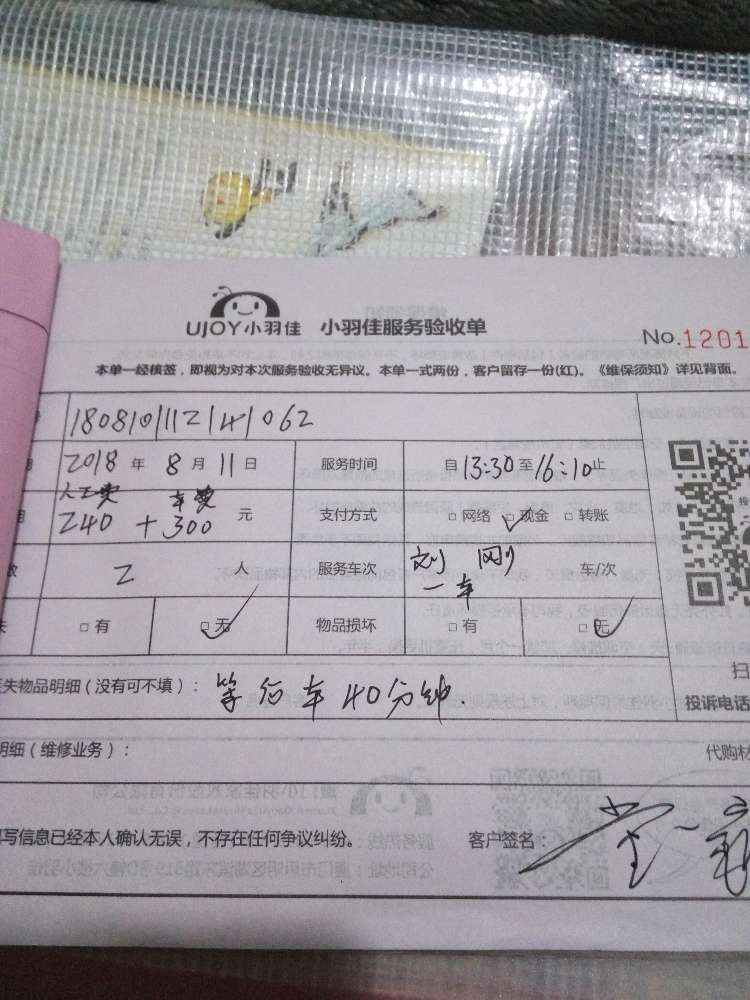 UJOY小羽佳 小羽佳服务验收单
No.1201
本单一经核签，即视为对本次服务验收无异议。本单一式两份，客户留存一份(红)。《维保须知》详见背面。
2018 年 8 月 11 日 服务时间 自 13:30 至 16:10 止
人工费 车费
240 + 300 元 支付方式 □ 网络 □ 现金 □ 转账
2 人 服务车次 刘 刚 一车 车/次
□ 有 □ 无 物品损坏 □ 有 □ 无
失物品明细（没有可不填）： 等行车40分钟 投诉电话
明细（维修业务）： 代购材
写信息已经本人确认无误，不存在任何争议纠纷。 客户签名：